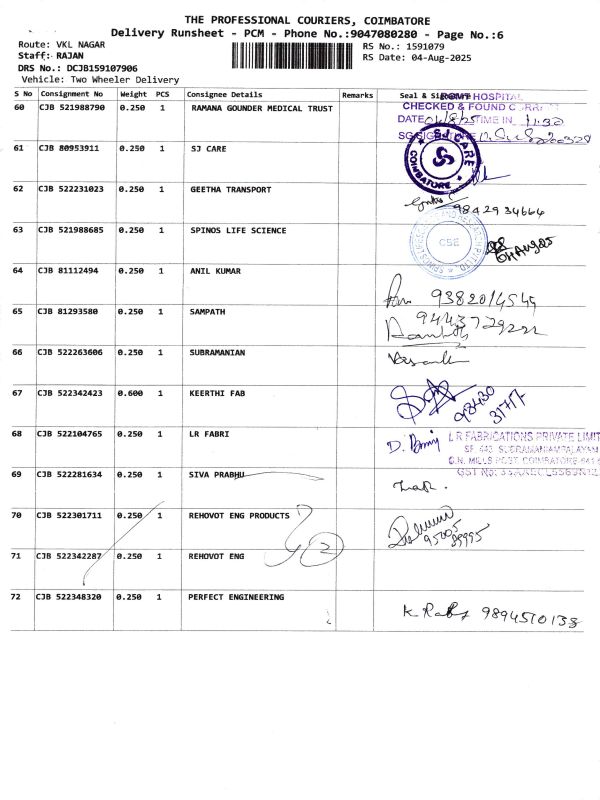 THE PROFESSIONAL COURIERS, COIMBATORE
Delivery Runsheet - PCM - Phone No.:9047080280 - Page No.:6
Route: VKL NAGAR RS No.: 1591079
Staff: RAJAN RS Date: 04-Aug-2025
DRS No.: DCJB159107906
Vehicle: Two Wheeler Delivery
S No Consignment No Weight PCS Consignee Details Remarks Seal &
HOSPITAL
60 CJB 521988790 0.250 1 RAMANA GOUNDER MEDICAL TRUST
CHECKED & FOUND
DATE TIME IN 11:32
61 CJB 80953911 0.250 1 SJ CARE
SJ CARE
COIMBATORE
62 CJB 522231023 0.250 1 GEETHA TRANSPORT
9842934664
63 CJB 521988685 0.250 1 SPINOS LIFE SCIENCE
CSE
04 AUG 25
64 CJB 81112494 0.250 1 ANIL KUMAR
9382014549
65 CJB 81293580 0.250 1 SAMPATH
66 CJB 522263606 0.250 1 SUBRAMANIAN
67 CJB 522342423 0.600 1 KEERTHI FAB
98430
31717
68 CJB 522104765 0.250 1 LR FABRI
L R FABRICATIONS PRIVATE LIMIT
SF 443 SUBRAMANIAMPALAYAM
G.N. MILLS POST COIMBATORE
69 CJB 522281634 0.250 1 SIVA PRABHU
GST No:
70 CJB 522301711 0.250 1 REHOVOT ENG PRODUCTS
95005
89995
2
71 CJB 522342287 0.250 1 REHOVOT ENG
72 CJB 522348320 0.250 1 PERFECT ENGINEERING
9894510138